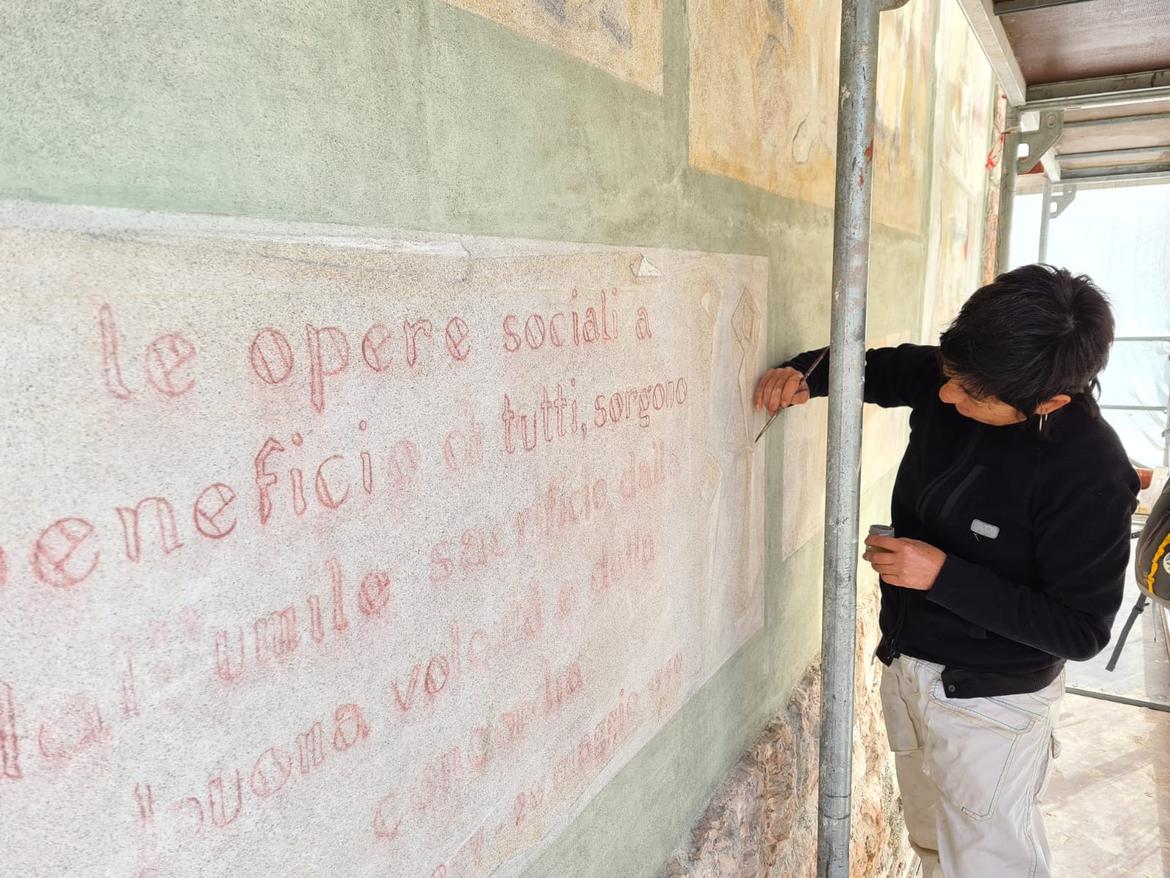 le opere sociali a
beneficio di tutti, sorgono
dal umile sacrificio, dalla
buona volontà e dalla
maggio